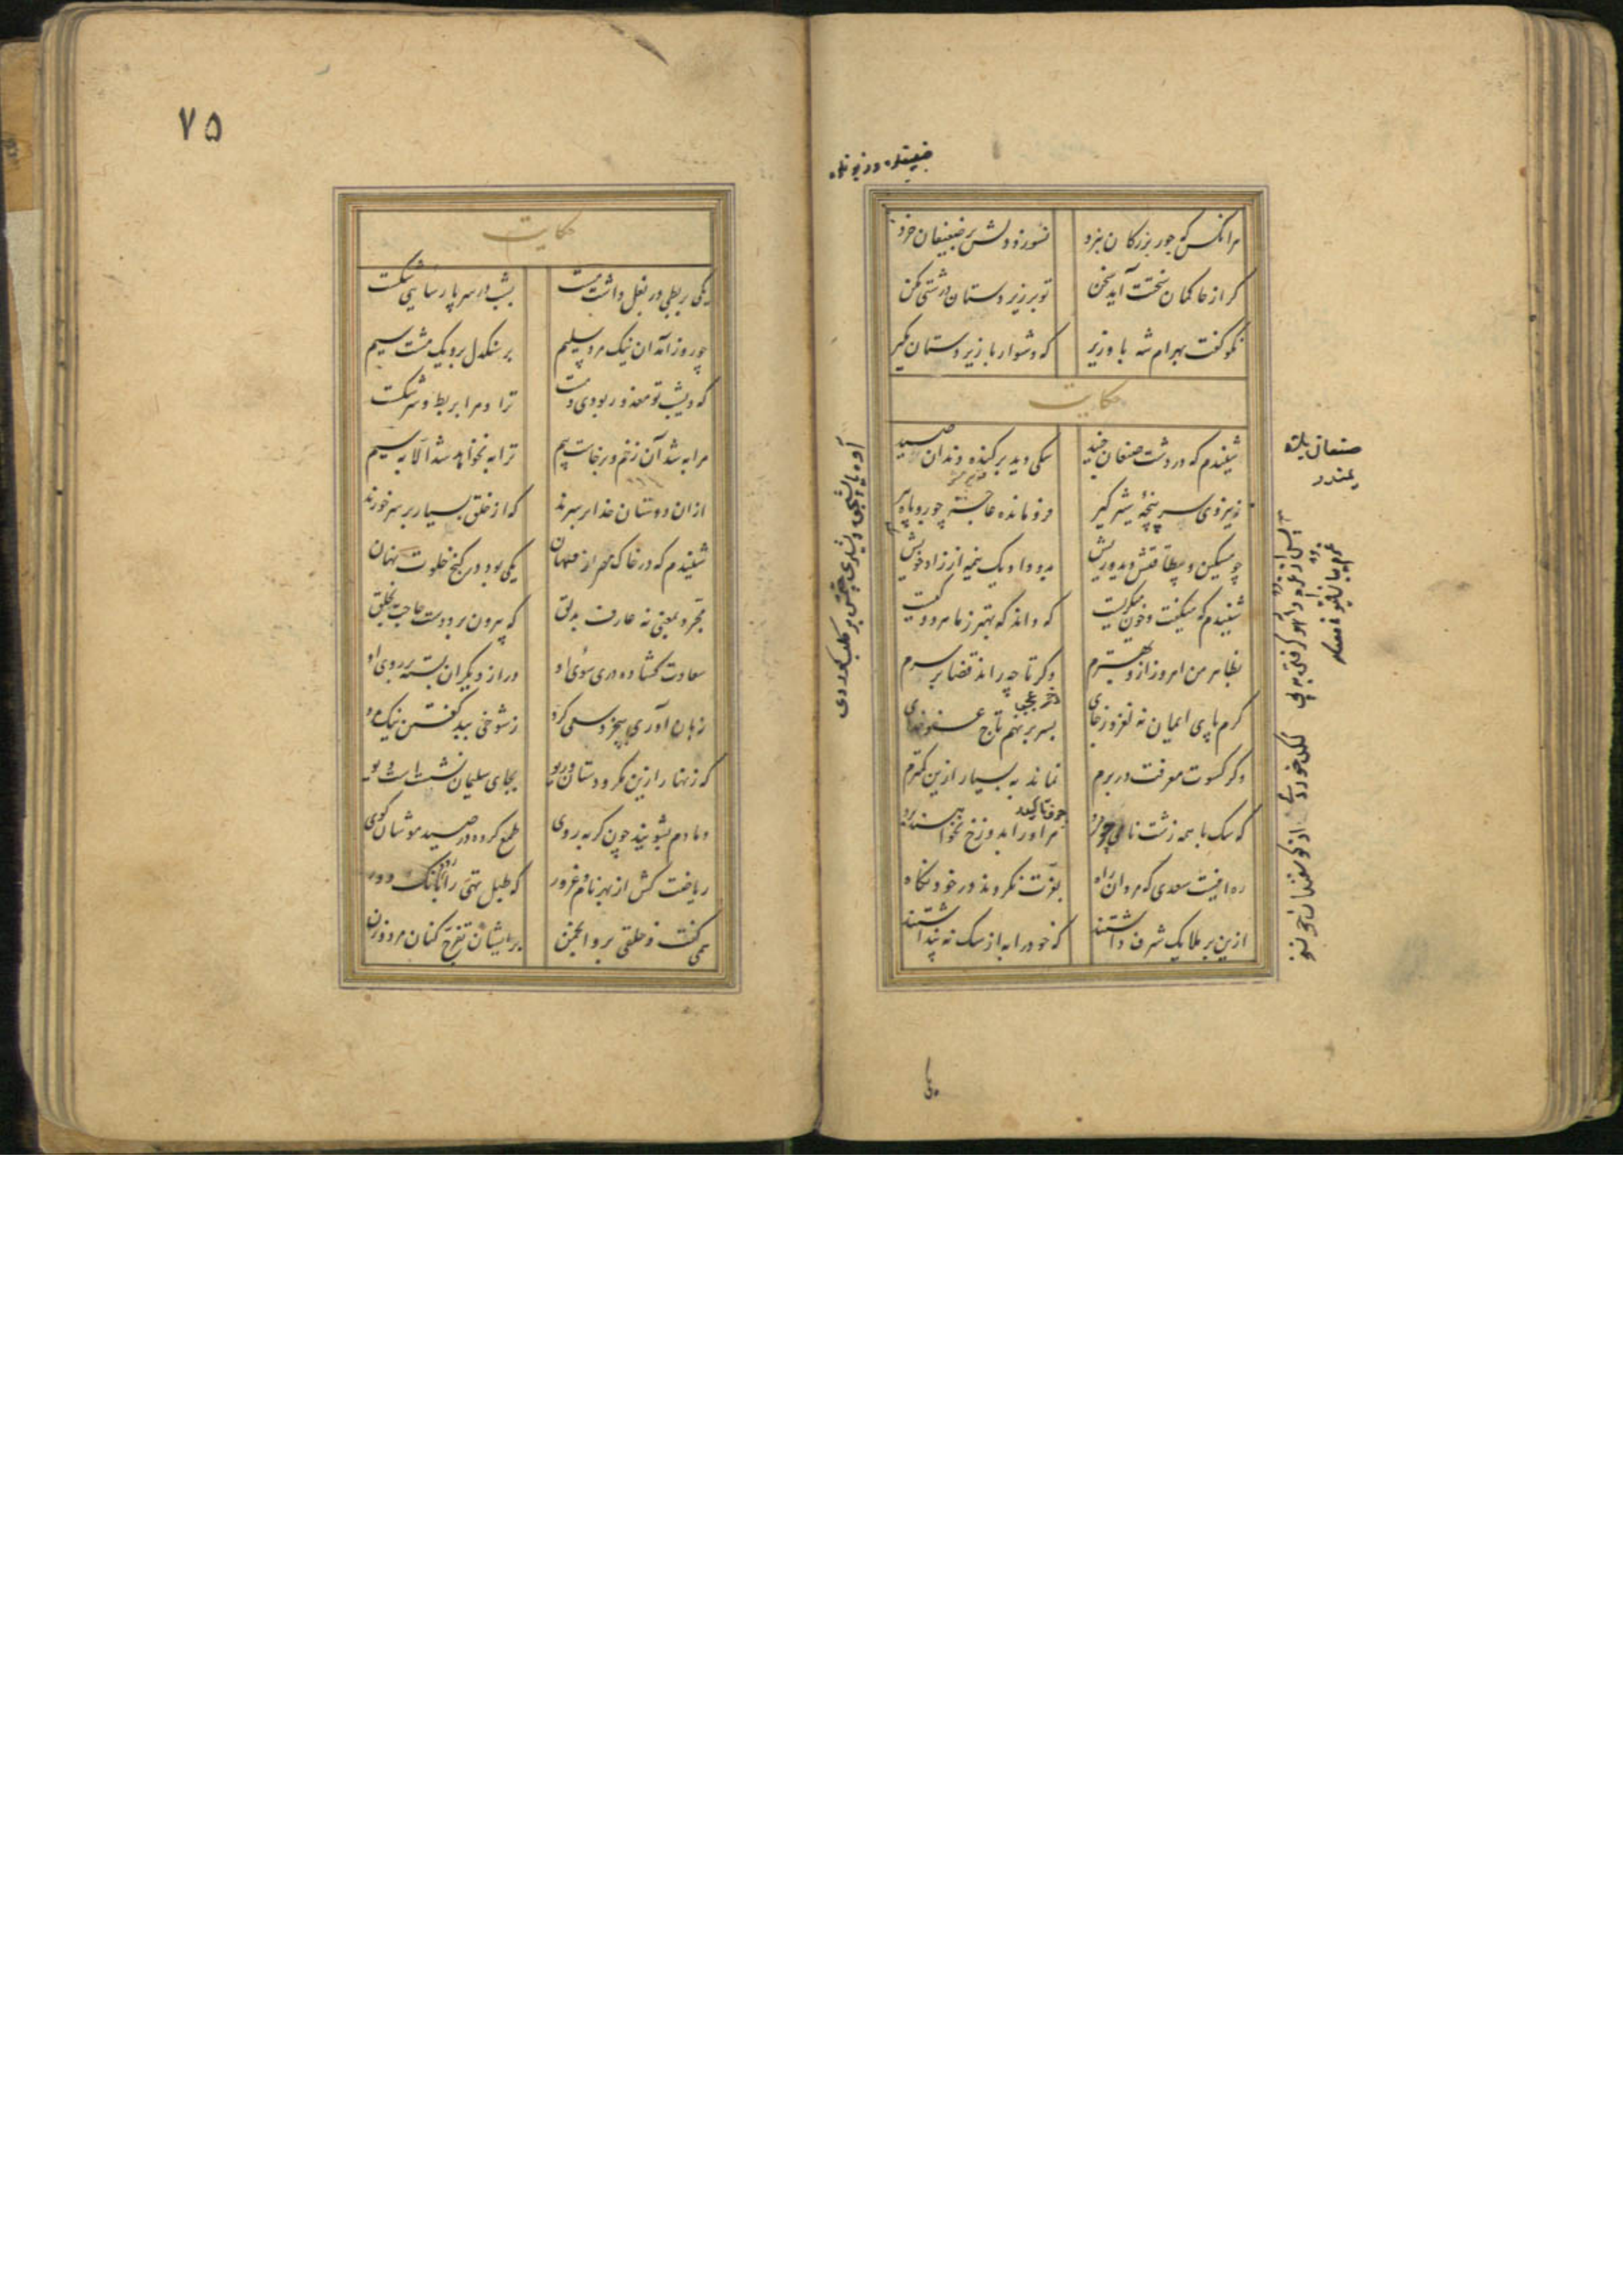 هرانکس که جور بزرگان نبرد نسوزد دلش بر ضعیفان خرد
گر از حاکمان سختت آید سخن تو بر زیردستان درشتی مکن
نکو گفت بهرام شه با وزیر که دشوار با زیردستان مگیر
حکایت
شنیدم که در دشت صنعان جنید سگی دید برکنده دندان صید
ز نیروی سرپنجهٔ شیر گیر فرومانده عاجز چو روباه پیر
چو مسکین و بیطاقتش دید و ریش بدو داد یک نیمه از زاد خویش
شنیدم که میگفت و خون میگریست که داند که بهتر ز ما هر دو کیست
بظاهر من امروز ازو بهترم دگر تا چه راند قضا بر سرم
گرم پای ایمان نه لغزد ز جای بسر بر نهم تاج عفو خدای
وگر کسوت معرفت در برم نماند به بسیار ازین کمترم
که سگ با همه زشت نامی چو مرد مر او را بدوزخ نخواهند برد
ره اینست سعدی که مردان راه بعزت نکردند در خود نگاه
ازین بر ملایک شرف داشتند که خود را به از سگ نه پنداشتند
صنعان بلده
یمندر
۷۵
حکایت
یکی بربطی در بغل داشت مست بشب در سر پارسایی شکست
چو روز آمد آن نیک مرد سلیم بر سنگدل برد یک مشت سیم
که دیشب تو معذور بودی و مست ترا و مرا بربط و سر شکست
مرا به شد آن زخم و برخاست بیم ترا به نخواهد شد الا به سیم
ازان دوستان خدا بر سرند که از خلق بسیار بر سر خورند
حکایت
شنیدم که در خاک وخش از مهان یکی بود در کنج خلوت نهان
مجرد بمعنی نه عارف بدلق که بیرون برد دست حاجت بخلق
سعادت گشاده دری سوی او در از دیگران بسته بر روی او
زبان آوری بیخرد سعی کرد ز شوخی ببد گفتن نیک مرد
که زنهار ازین مکر و دستان و ریو بجای سلیمان نشستن چو دیو
دمادم بشویند چون گربه روی طمع کرده در صید موشان کوی
ریاضت کش از بهر نام و غرور که طبل تهی را رود بانگ دور
همی گفت و خلقی برو انجمن بر ایشان تفرج کنان مرد و زن